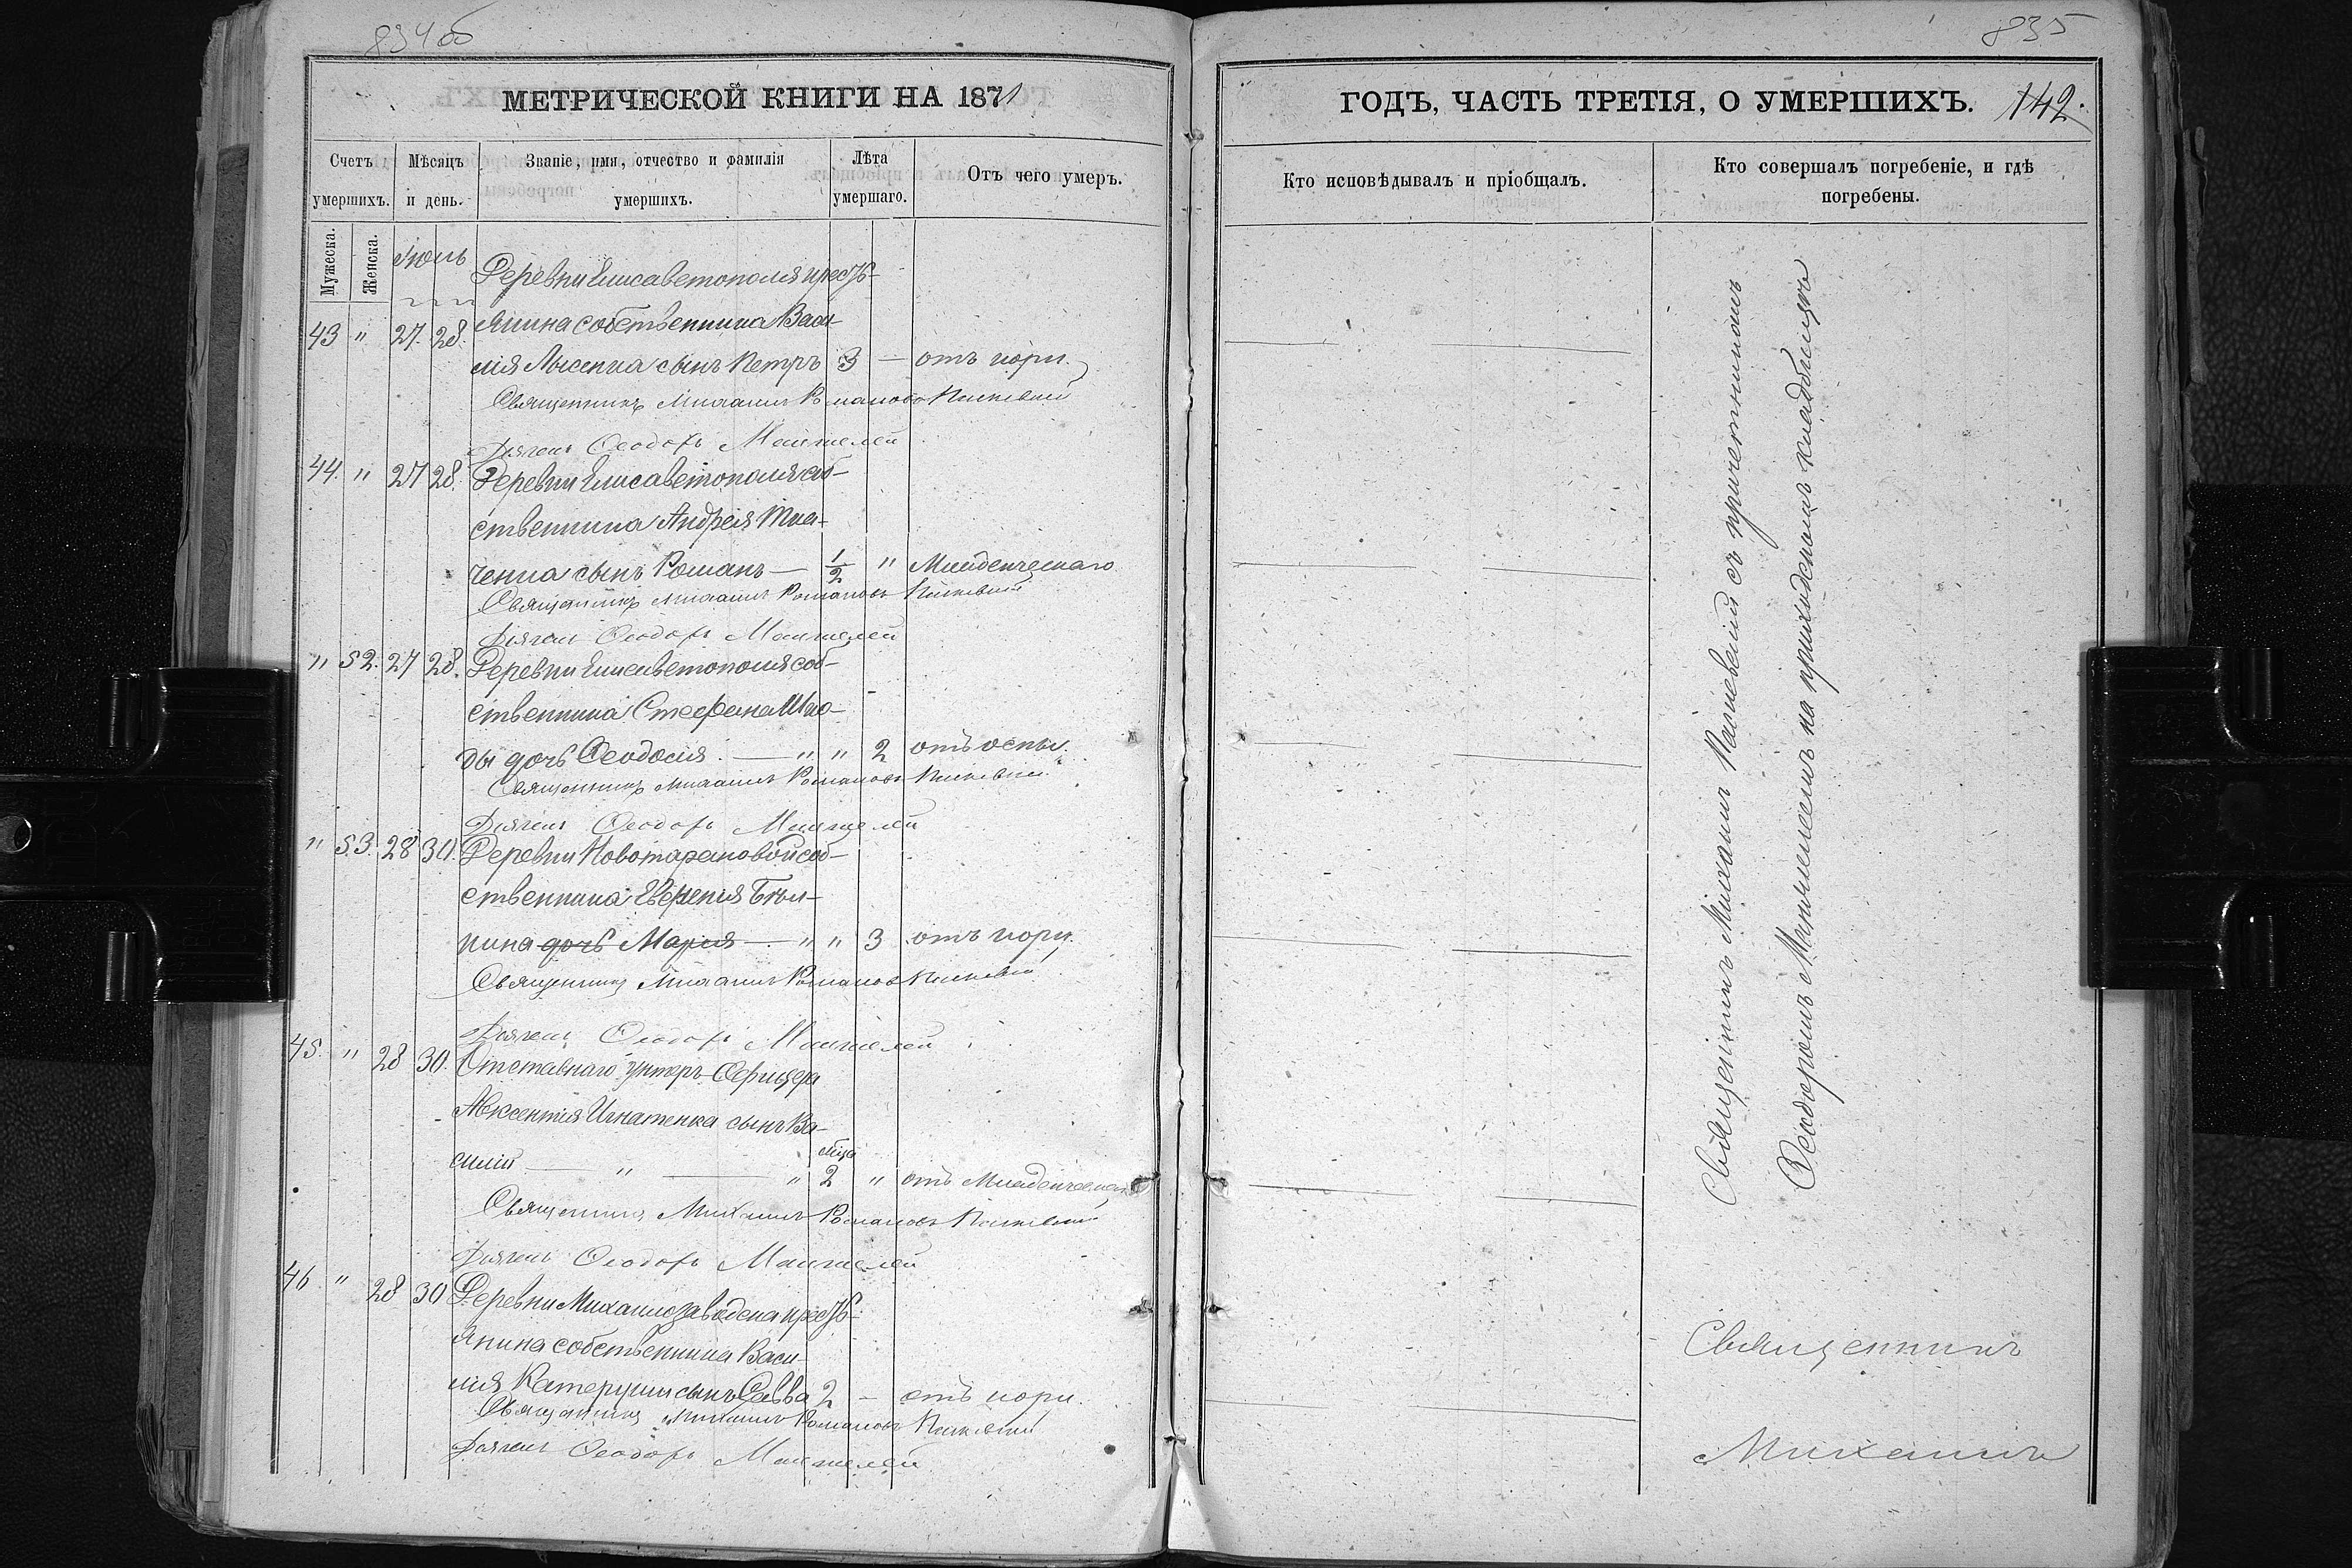 834об
МЕТРИЧЕСКОЙ КНИГИ НА 1871
Счетъ умершихъ.
Мужеска.
Женска.
Мѣсяцъ и день.
Званіе, имя, отчество и фамилія умершихъ.
Лѣта умершаго.
Отъ чего умеръ.
Іюль
Деревни Елисаветополя кресть-
43 " 27. 28. янина собственника Васи-
лія Лысенка сынъ Петръ 3 — отъ кори.
Священникъ Михаилъ Романовъ
Дьячекъ Ѳеодоръ
44. " 27 28. Деревни Елисаветополя соб-
ственника Андрея Тка-
ченка сынъ Романъ — 1/2 " Младенческаго
Священникъ Михаилъ Романовъ
Дьячекъ Ѳеодоръ
" 52. 27 28. Деревни Елисаветополя соб-
ственника Стефана Шко-
ды дочь Ѳеодосія. — " " 2 отъ оспы.
Священникъ Михаилъ Романовъ
Дьячекъ Ѳеодоръ
" 53. 28 30. Деревни Новотарановой соб-
ственника Евгенія
дочь Марія — " " 3 отъ кори.
Священникъ Михаилъ Романовъ
Дьячекъ Ѳеодоръ
45. " 28 30. Отставнаго унтеръ-Офицера
Авксентія Игнатенка сынъ Ва-
силій — " — " мѣся 2 " отъ Младенческаго
Священникъ Михаилъ Романовъ
Дьячекъ Ѳеодоръ
46. " 28 30 Деревни Михаилозаводска кресть-
янина собственника Васи-
лія сынъ Савва 2 — отъ кори.
Священникъ Михаилъ Романовъ
Дьячекъ Ѳеодоръ
835
ГОДЪ, ЧАСТЬ ТРЕТІЯ, О УМЕРШИХЪ. 142.
Кто исповѣдывалъ и пріобщалъ.
Кто совершалъ погребеніе, и гдѣ погребены.
Священникъ Михаилъ съ причетникомъ
Ѳеодоромъ на приходскомъ кладбищѣ
Священникъ
Михаилъ